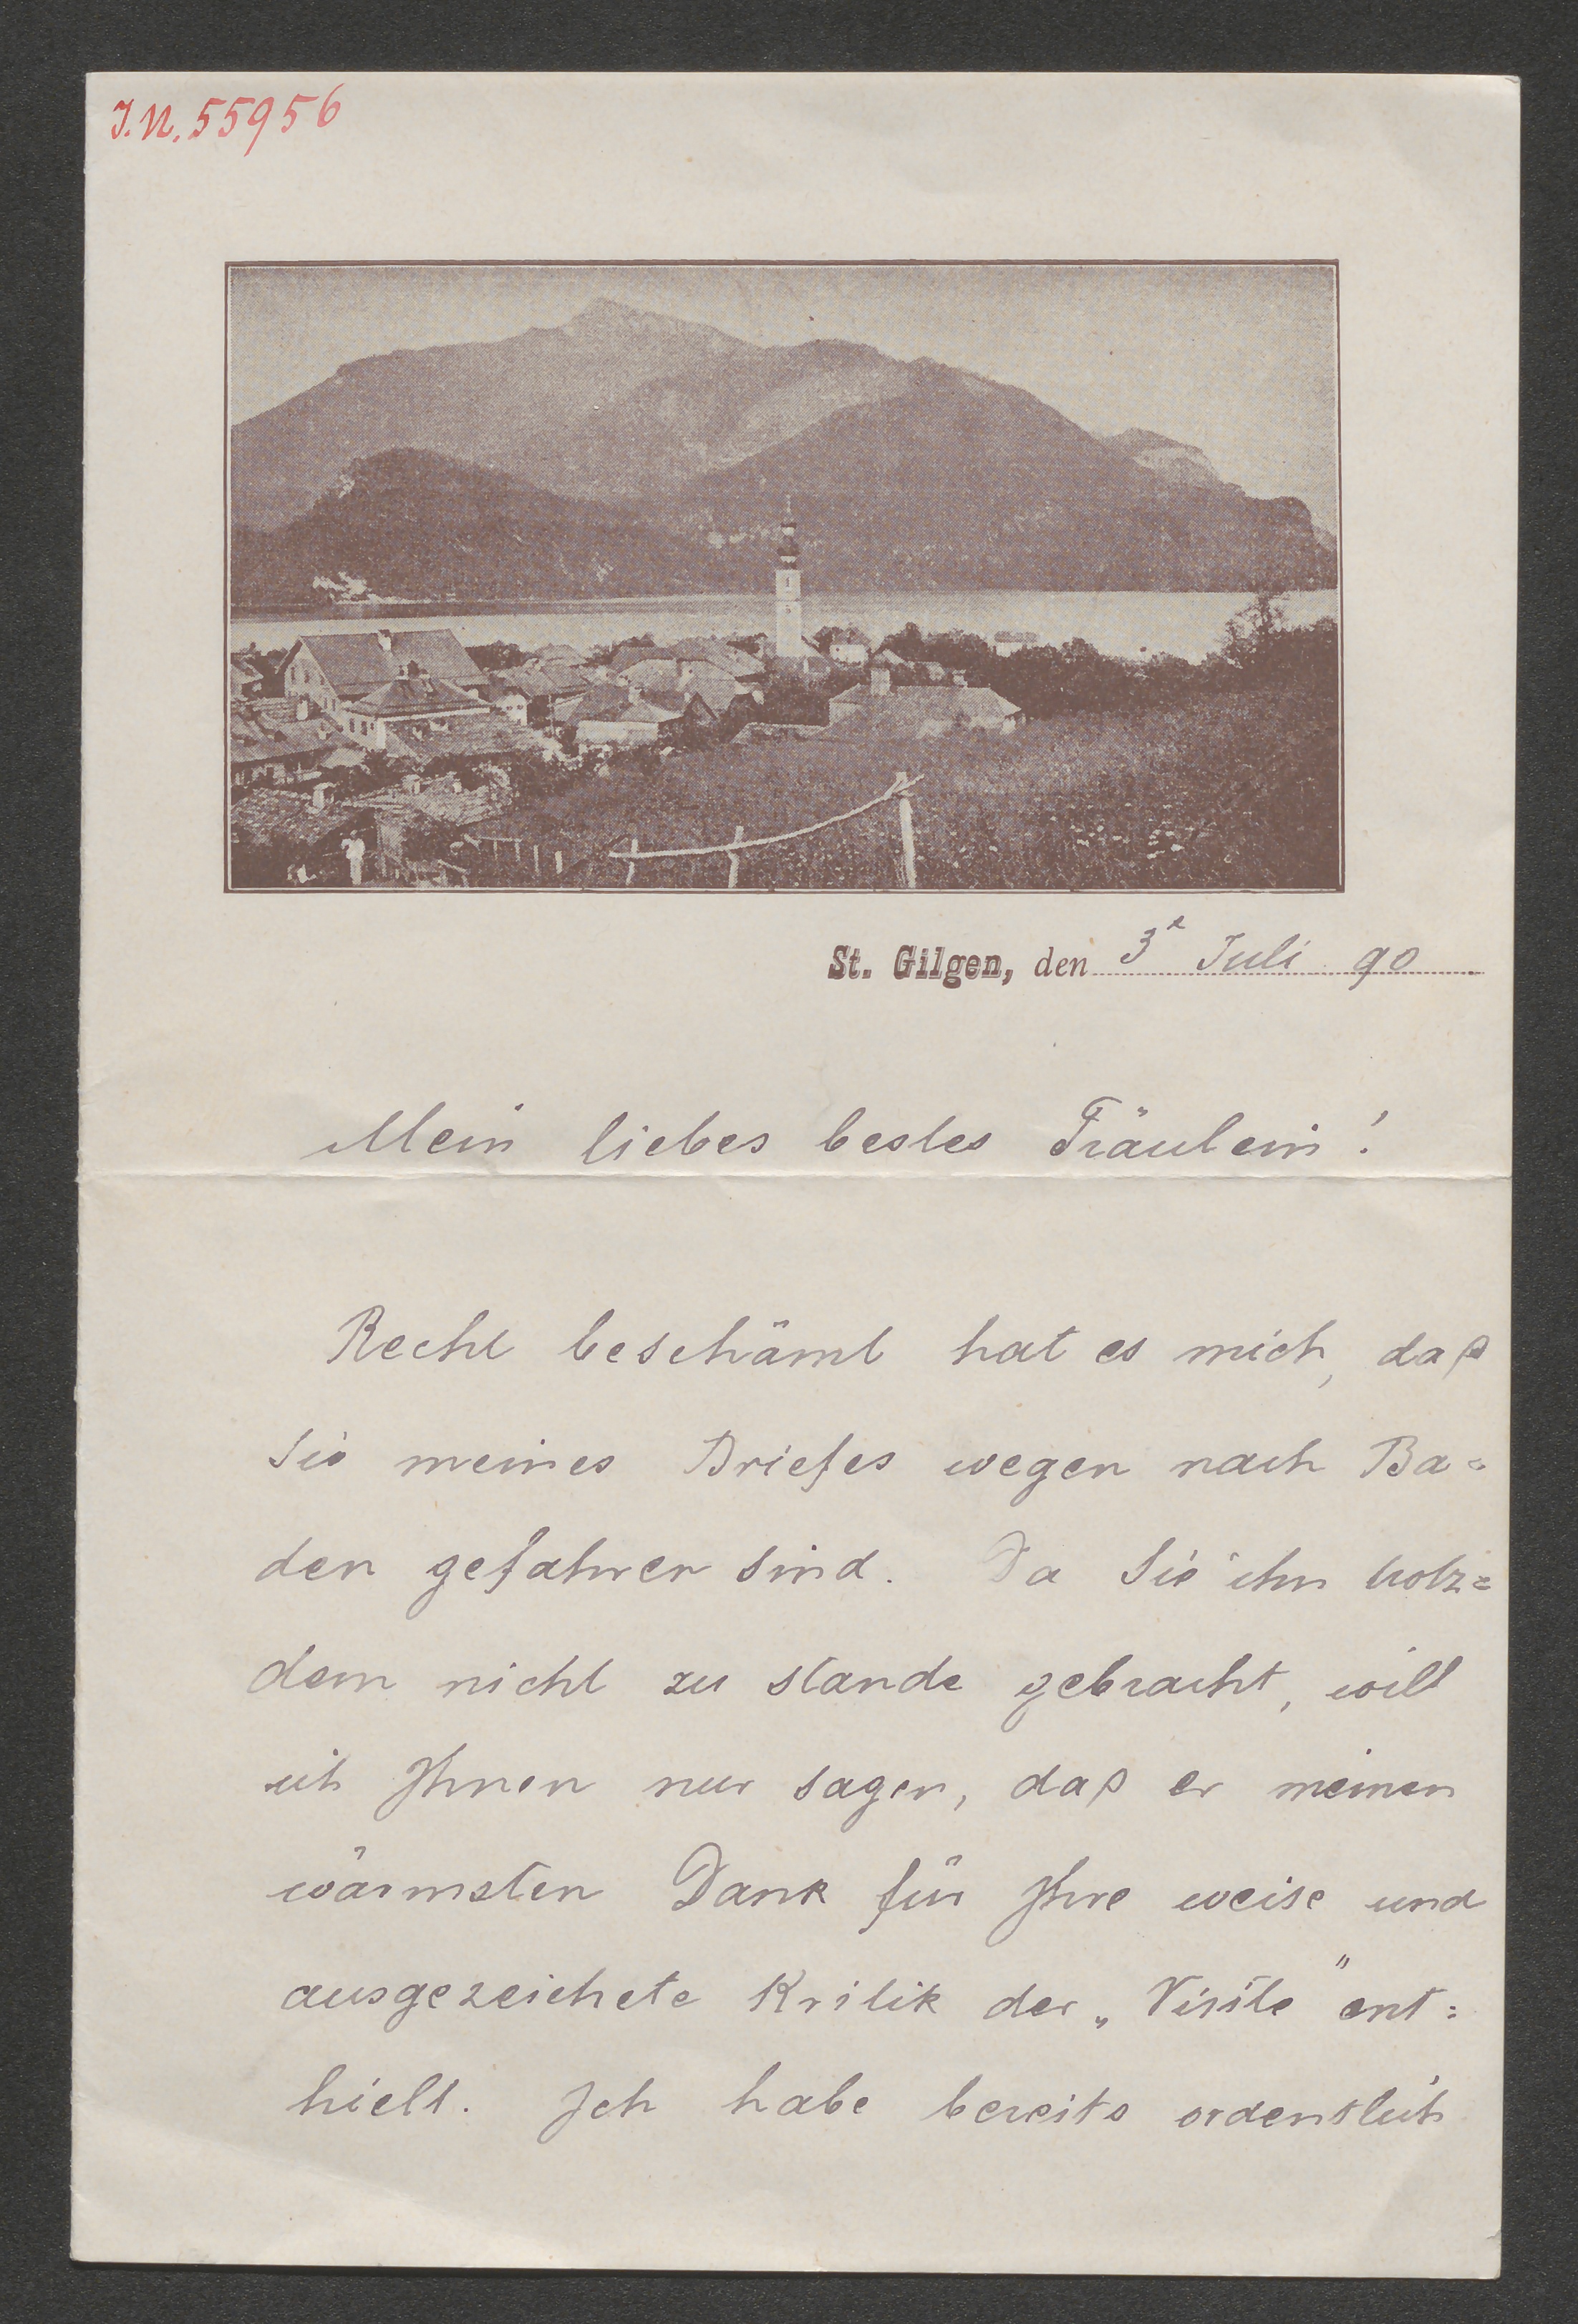 I.N. 55956
St. Gilgen, den 3t Juli 90
Mein liebes bestes Fräulein!
Recht beschämt hat es mich, daß
Sie meines Briefes wegen nach Ba=
den gefahren sind. Da Sie ihn trotz=
dem nicht zu stande gebracht, will
ich Ihnen nur sagen, daß er meinen
wärmsten Dank für Ihre weise und
ausgezeichete Kritik der „Visite" ent=
hielt. Ich habe bereits ordentlich